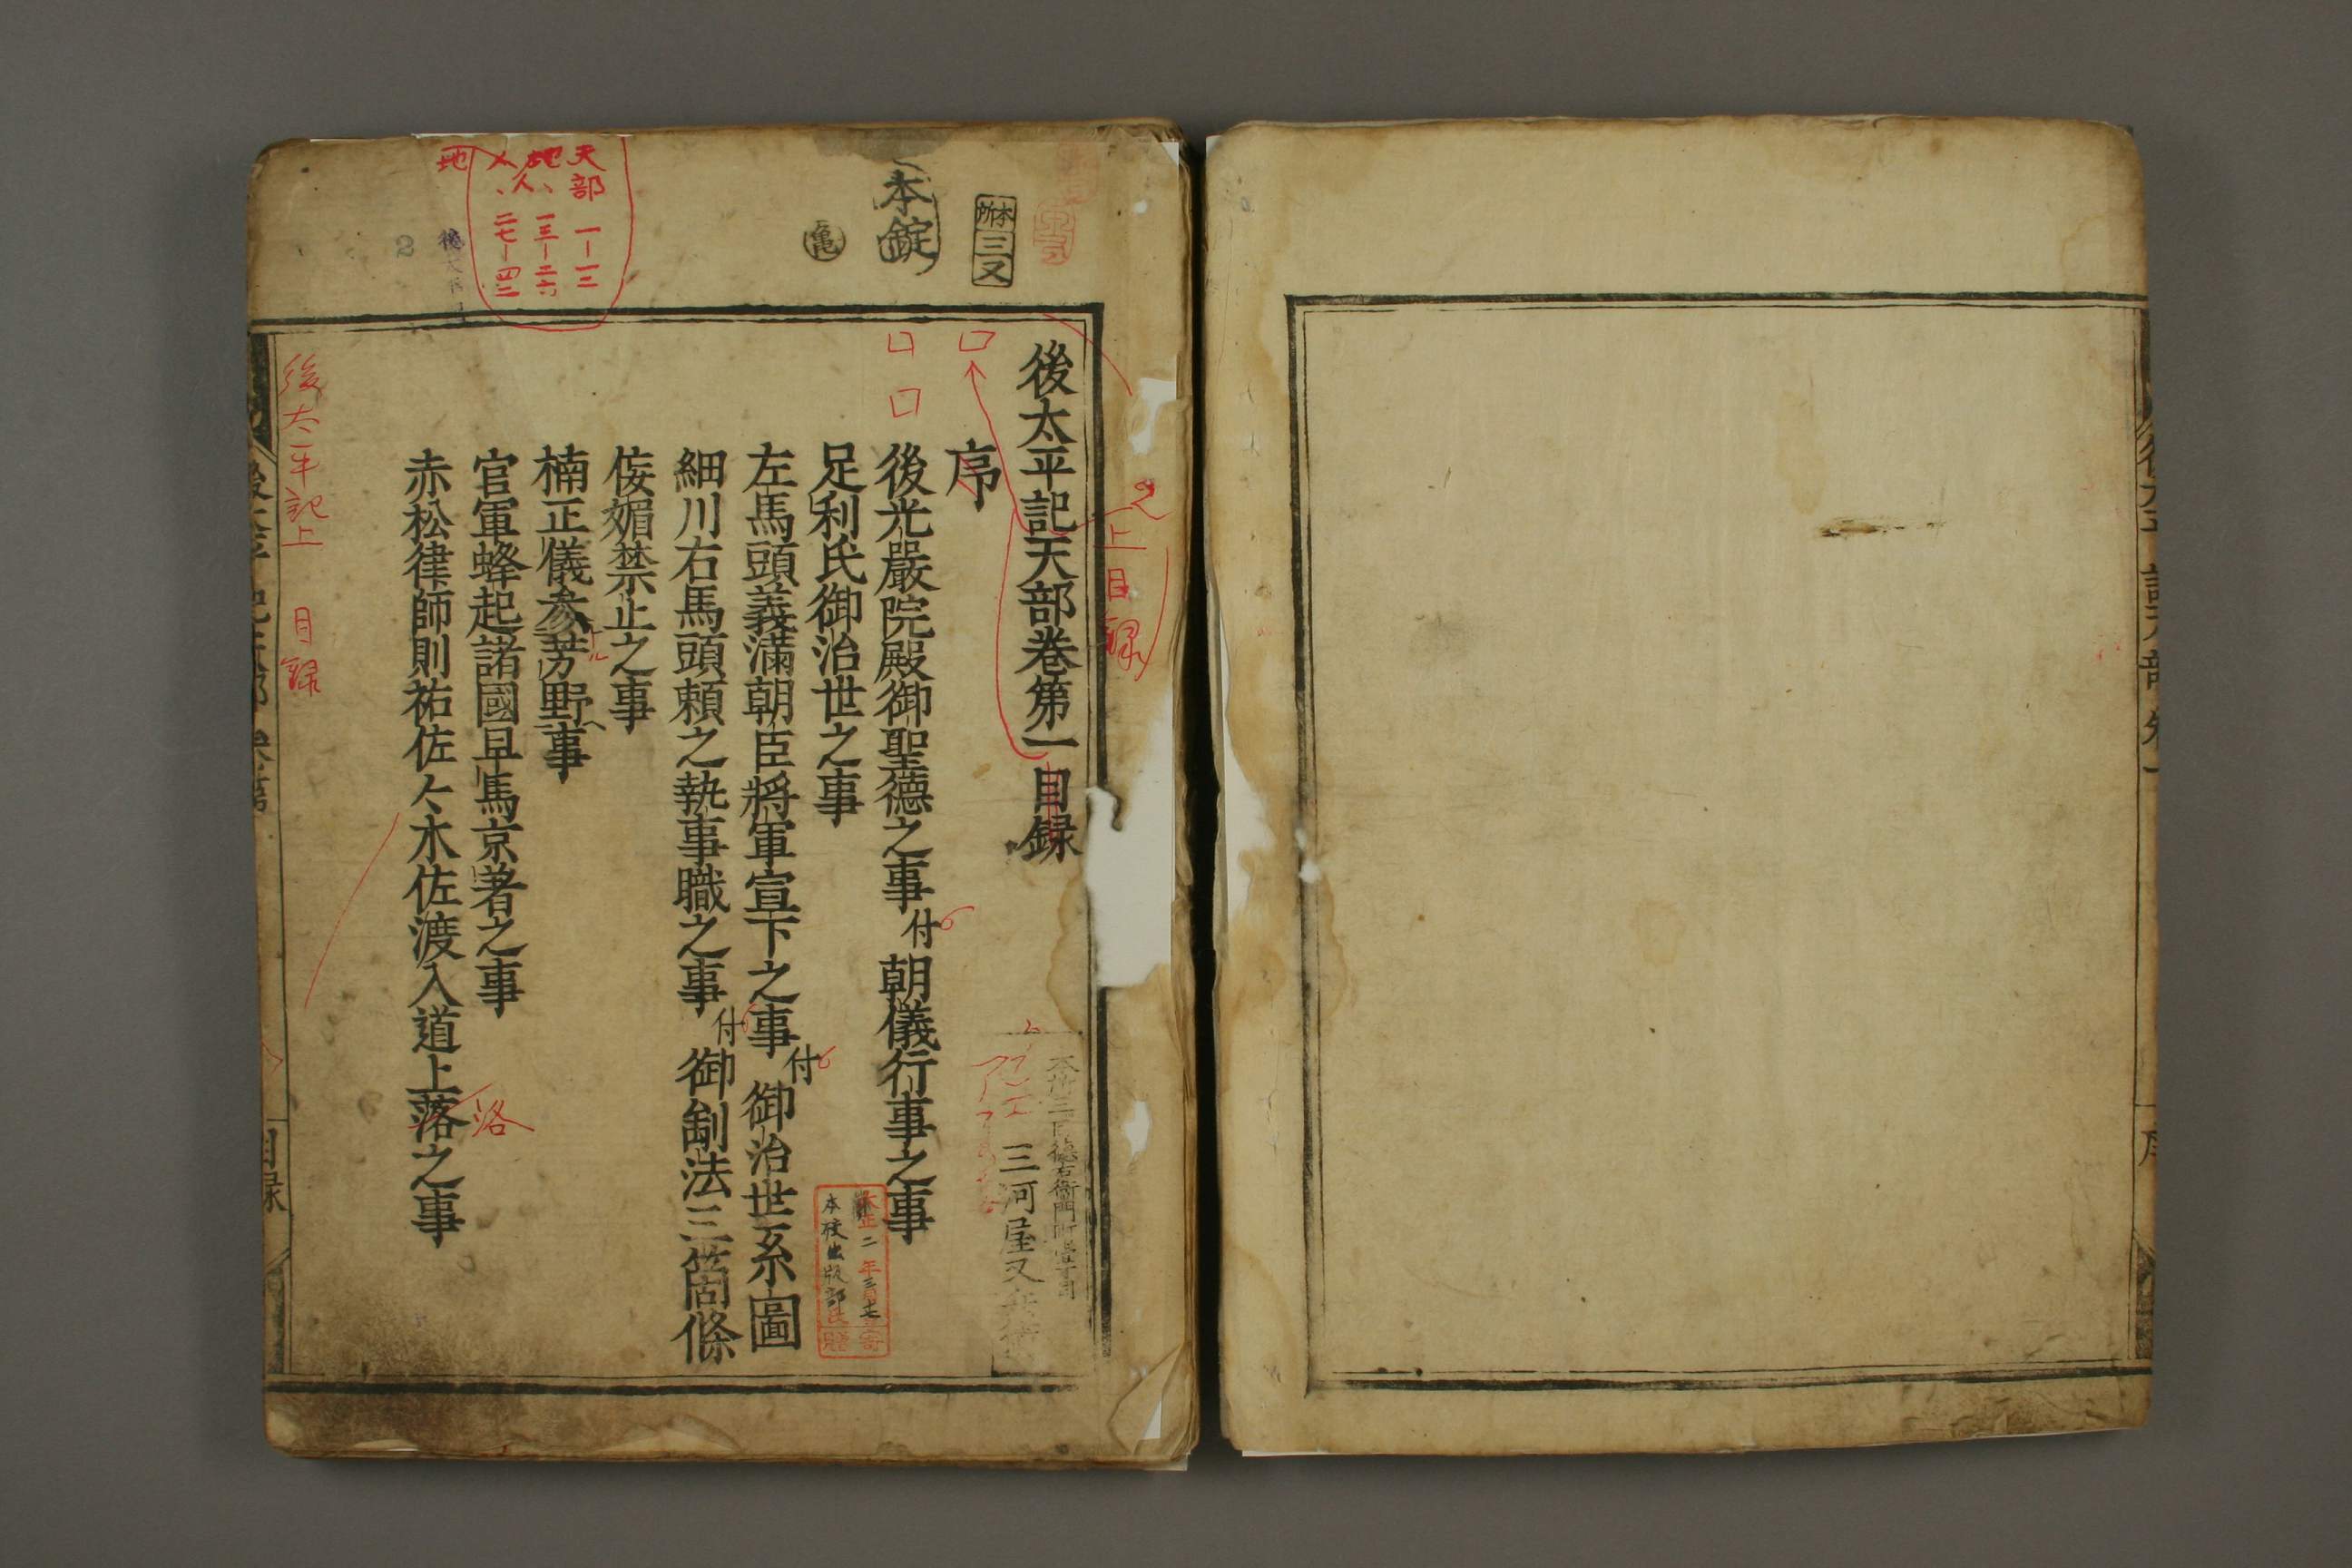 後太平記天部巻第一目録
序
後光嚴院殿御聖德之事付朝儀行事之事
足利氏御治世之事
左馬頭義満朝臣將軍宣下之事付御治世系圖
細川右馬頭頼之執事職之事付御制法三箇條
侫媚禁止之事
楠正儀参芳野事
官軍蜂起諸國早馬京著之事
赤松律師則祐佐々木佐渡入道上落之事
落
後太平記上 目録
上目録
本所
三又
本錠
亀
天部 一ー一二
地、一三ー二六
人、二七ー四二
地
2
三河屋又
本校出版部
贈
目録